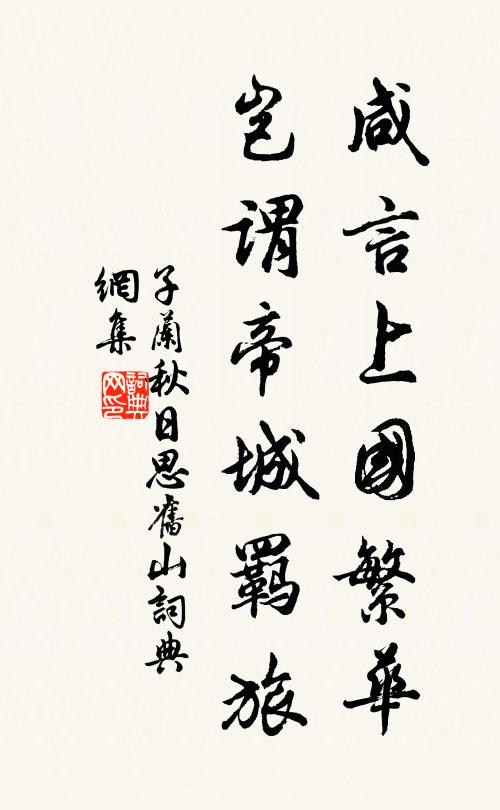 咸言上國繁華
豈謂帝城羇旅
子蘭秋日思舊山詞典
網集
詞典
网印